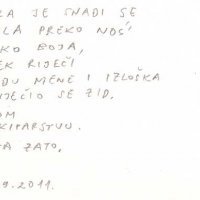 LA JE SNAĐI SE
LA PREKO NOĆI
KO BOJA,
EK RIJEČI
ĐU MENE I IZLOŠKA
JEČIO SE ZID.
OM
KIPARSTVU.
A ZATO,
9.2011.